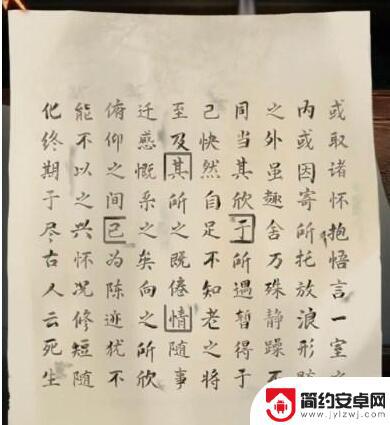 或取诸怀抱悟言一室
内或因寄所托放浪形骸
之外虽趣舍万殊静躁不
同当其欣于所遇暂得于
己快然自足不知老之将
至及其所之既倦情随事
迁感慨系之矣向之所欣
俯仰之间已为陈迹犹不
能不以之兴怀况修短随
化终期于尽古人云死生
简约安卓网
www.jylzwj.com